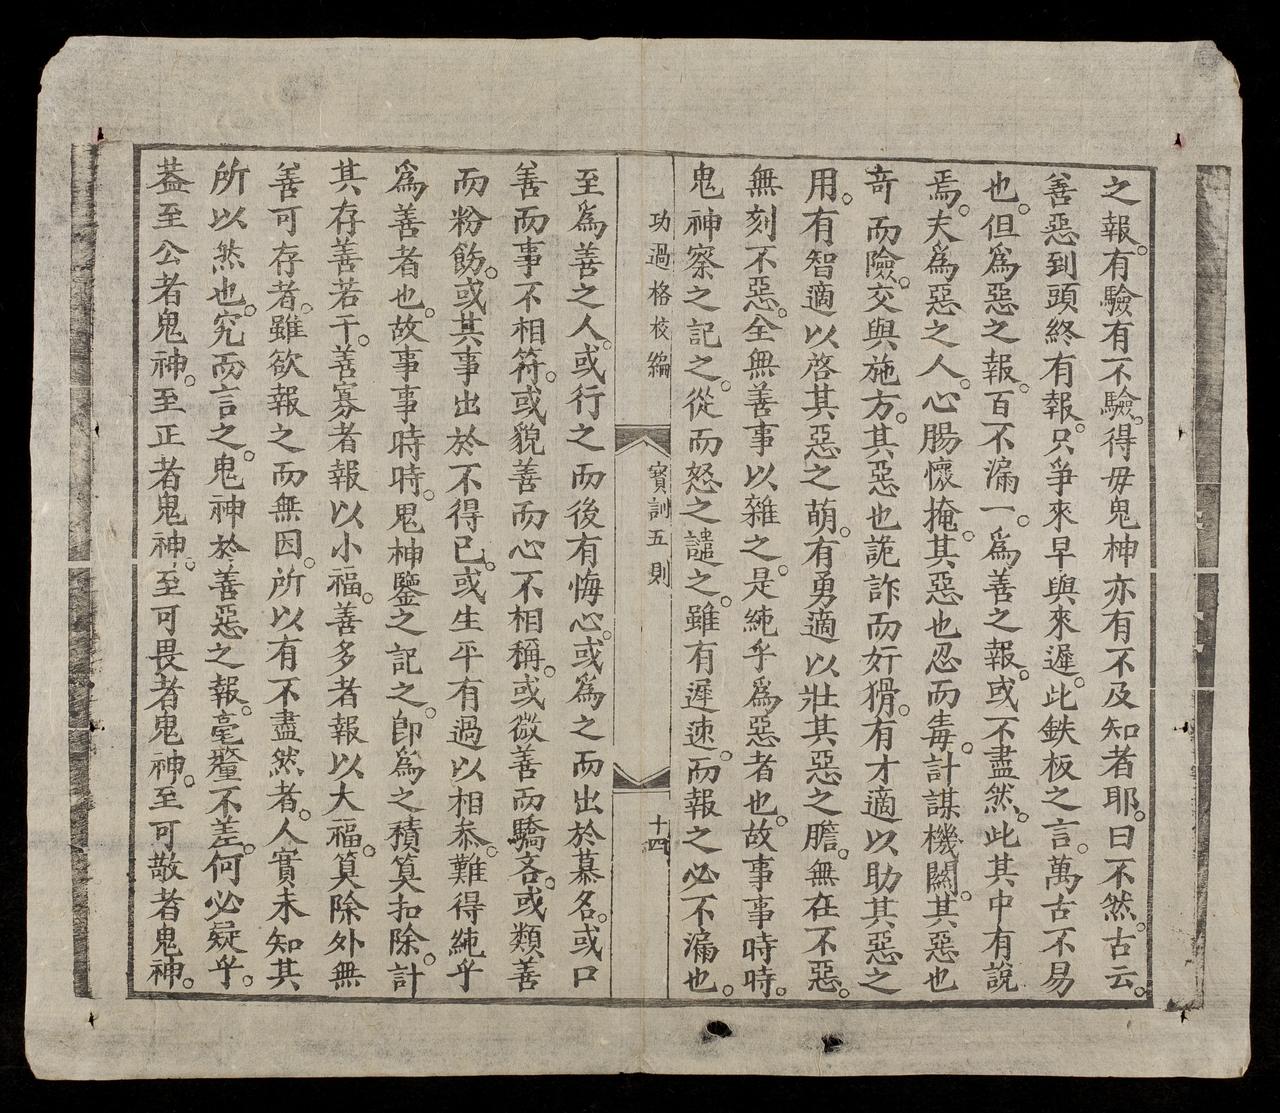 之報。有驗有不驗。得毋鬼神亦有不及知者耶。曰不然。古云。
善惡到頭終有報。只爭來早與來遲。此鉄板之言。萬古不易
也。但爲惡之報。百不漏一。爲善之報。或不盡然。此其中有說
焉。夫爲惡之人。心腸懷掩。其惡也忍而毒。計謀機關。其惡也
奇而險。交與施方。其惡也詭詐而奸猾。有才適以助其惡之
用。有智適以啓其惡之萌。有勇適以壯其惡之膽。無在不惡。
無刻不惡。全無善事以雜之。是純乎爲惡者也。故事事時時。
鬼神察之記之。從而怒之譴之。雖有遲速。而報之必不漏也。
功過格校編 寶訓五則 十四
至爲善之人。或行之而後有悔心。或爲之而出於慕名。或口
善而事不相符。或貌善而心不相稱。或微善而驕吝。或類善
而粉飭。或其事出於不得已。或生平有過以相叅。難得純乎
爲善者也。故事事時時。鬼神鑒之記之。卽爲之積算扣除。計
其存善若干。善寡者報以小福。善多者報以大福。算除外無
善可存者。雖欲報之而無因。所以有不盡然者。人實未知其
所以然也。究而言之。鬼神於善惡之報。毫釐不差。何必疑乎。
葢至公者鬼神。至正者鬼神。至可畏者鬼神。至可敬者鬼神。